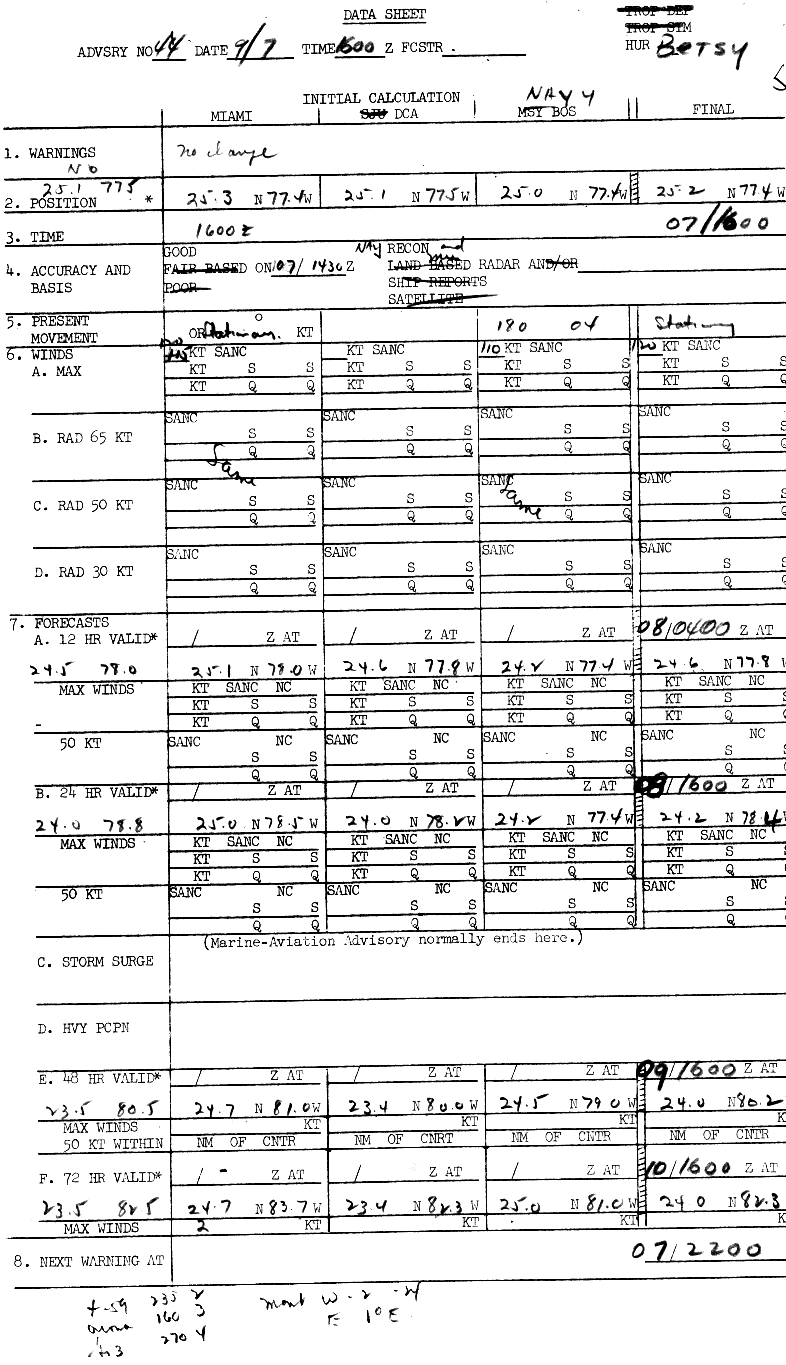 DATA SHEET
TROP DEP
TROP STM
ADVSRY NO 44 DATE 9/7 TIME 1600 Z FCSTR .
HUR BETSY
5
INITIAL CALCULATION NAVY
MIAMI SJU DCA MSY BOS FINAL
1. WARNINGS no change
NO
25.1 775
2. POSITION * 25.3 N 77.4 W 25.1 N 775 W 25.0 N 77.4 W 25.2 N 77.4 W
3. TIME 1600 Z 07/1600
GOOD NAVY RECON and
4. ACCURACY AND FAIR BASED ON 07/1430 Z LAND BASED RADAR AND/OR
BASIS POOR SHIP REPORTS
SATELLITE
5. PRESENT O 180 04 Stationary
MOVEMENT OR Stationary. KT
6. WINDS KT SANC KT SANC 110 KT SANC 120 KT SANC
A. MAX KT S S KT S S KT S S KT S S
KT Q Q KT Q Q KT Q Q KT Q Q
SANC SANC SANC SANC
B. RAD 65 KT S S S S S S S S
Q Q Q Q Q Q Q Q
Same
SANC SANC SANC SANC
C. RAD 50 KT S S S S Same S S S S
Q Q Q Q Q Q Q Q
SANC SANC SANC SANC
D. RAD 30 KT S S S S S S S S
Q Q Q Q Q Q Q Q
7. FORECASTS
A. 12 HR VALID* / Z AT / Z AT / Z AT 08/0400 Z AT
24.5 78.0 25.1 N 78.0 W 24.6 N 77.8 W 24.2 N 77.4 W 24.6 N 77.8
MAX WINDS KT SANC NC KT SANC NC KT SANC NC KT SANC NC
KT S S KT S S KT S S KT S S
- KT Q Q KT Q Q KT Q Q KT Q Q
50 KT SANC NC SANC NC SANC NC SANC NC
S S S S S S S S
Q Q Q Q Q Q Q Q
B. 24 HR VALID* / Z AT / Z AT / Z AT 08/1600 Z AT
24.0 78.8 25.0 N 78.5 W 24.0 N 78.2 W 24.2 N 77.4 W 24.2 N 78.4
MAX WINDS KT SANC NC KT SANC NC KT SANC NC KT SANC NC
KT S S KT S S KT S S KT S S
KT Q Q KT Q Q KT Q Q KT Q Q
50 KT SANC NC SANC NC SANC NC SANC NC
S S S S S S S S
Q Q Q Q Q Q Q Q
(Marine-Aviation Advisory normally ends here.)
C. STORM SURGE
D. HVY PCPN
E. 48 HR VALID* / Z AT / Z AT / Z AT 09/1600 Z AT
23.5 80.5 24.7 N 81.0 W 23.4 N 80.0 W 24.5 N 79 0 W 24.0 N 80.2
MAX WINDS KT KT KT K
50 KT WITHIN NM OF CNTR NM OF CNRT NM OF CNTR NM OF CNTR
F. 72 HR VALID* / - Z AT / Z AT / Z AT 10/1600 Z AT
23.5 825 24.7 N 83.7 W 23.4 N 82.3 W 25.0 N 81.0 W 24 0 N 82.3
MAX WINDS 2 KT KT KT K
8. NEXT WARNING AT 07/2200
235 2
160 3
270 4
W - 2
E 1° E